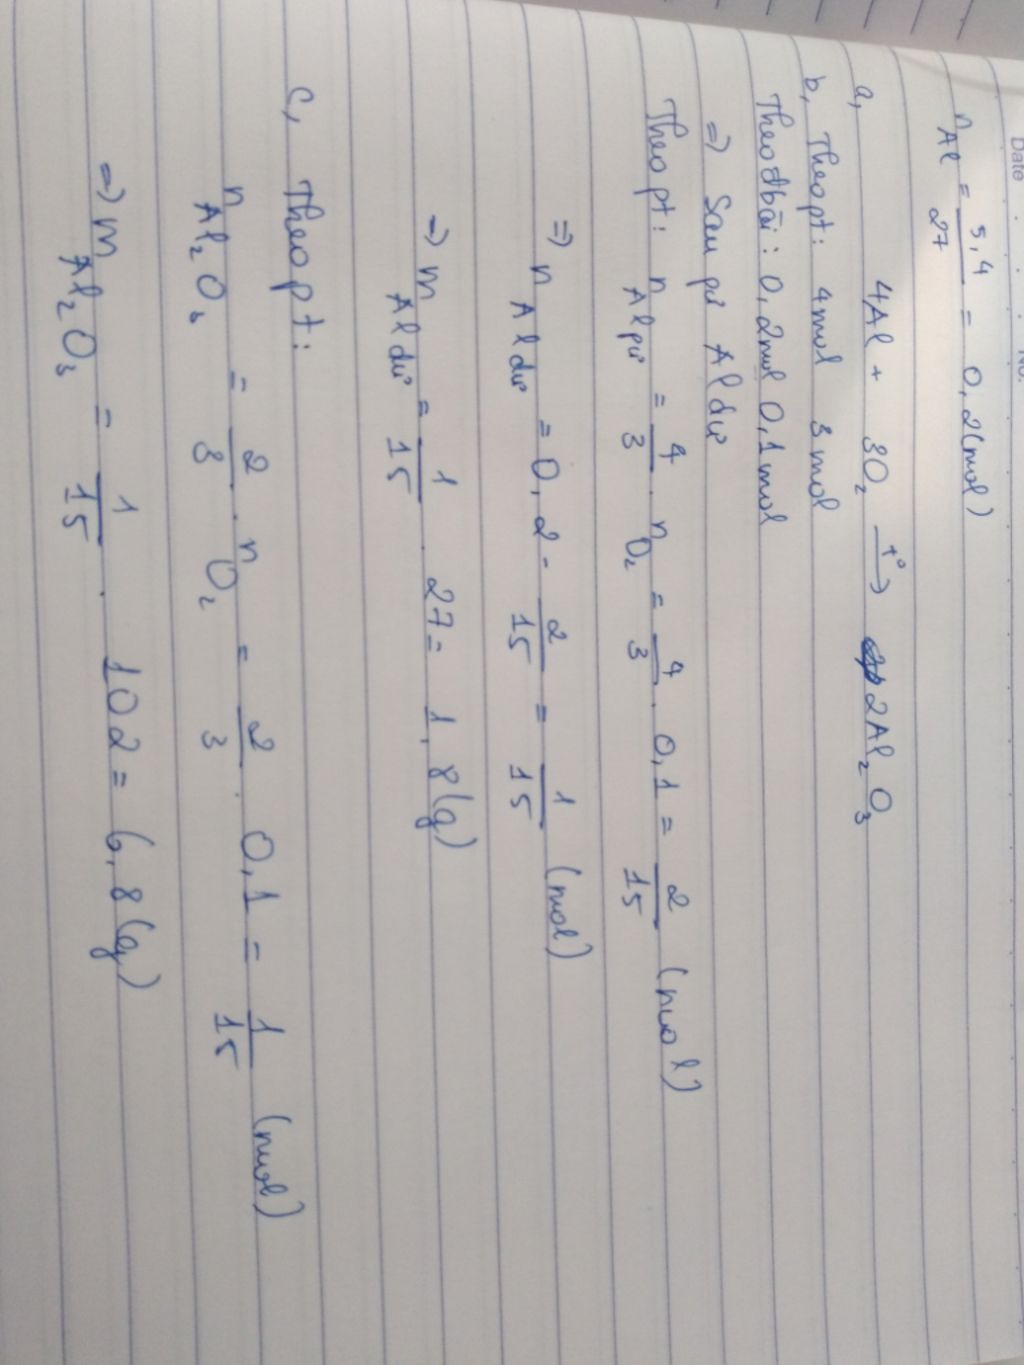 Date No.
nAl = 5,4/27 = 0,2(mol)
a, 4Al + 3O₂ —t°→ 2Al₂O₃
b, Theo pt: 4mol 3mol
Theo đbài: 0,2mol 0,1mol
=> Sau pứ Al dư
Theo pt: nAl pứ = 4/3 . nO₂ = 4/3 . 0,1 = 2/15 (mol)
=> nAl dư = 0,2 - 2/15 = 1/15 (mol)
=> mAl dư = 1/15 . 27 = 1,8(g)
c, Theo pt:
nAl₂O₃ = 2/3 . nO₂ = 2/3 . 0,1 = 1/15 (mol)
=> mAl₂O₃ = 1/15 . 102 = 6,8(g)